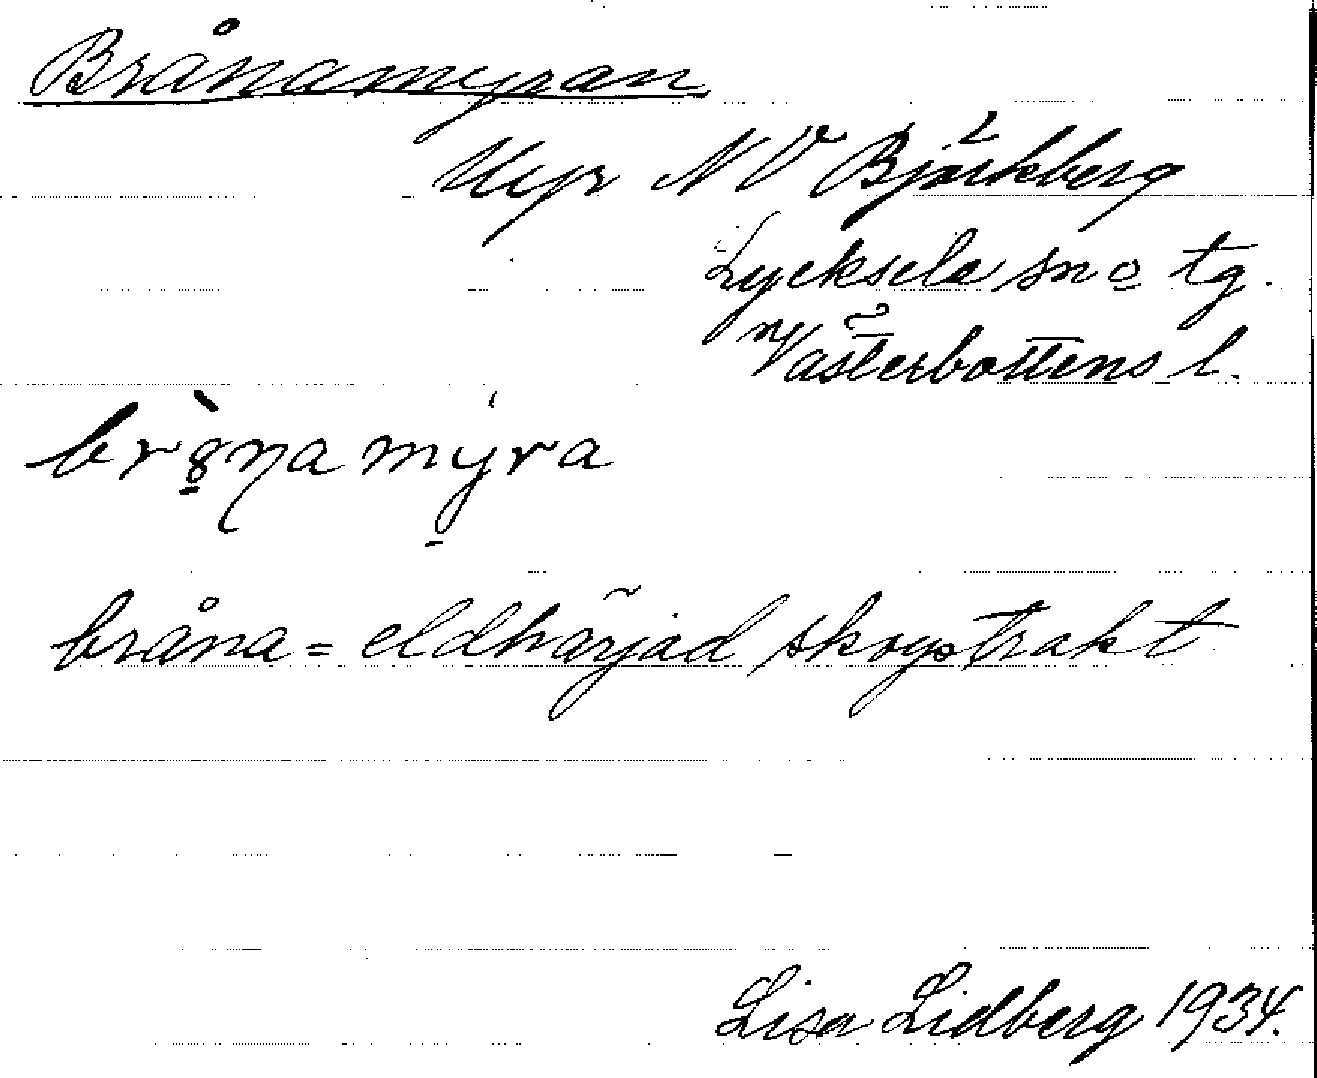 Brånamyran
Myr NV Björkberg
Lycksele sn o tg.
Västerbottens l.
bråna = eldhärjad skogstrakt
Lisa Lidberg 1934.